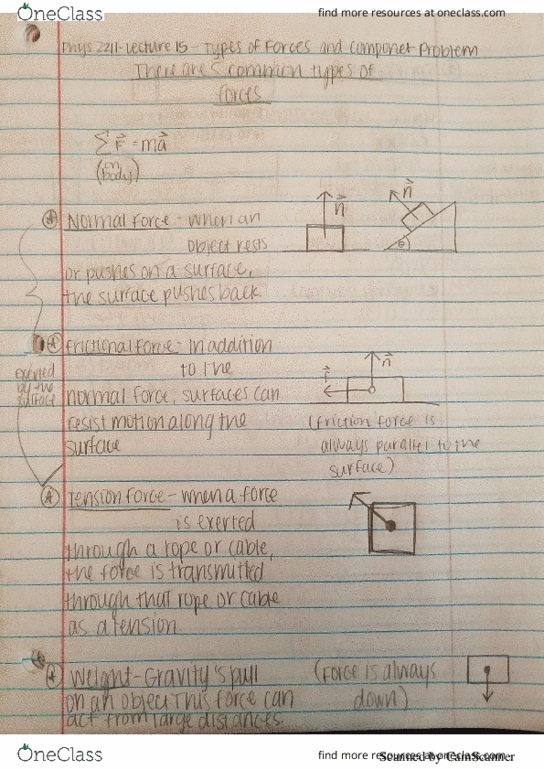 OneClass
find more resources at oneclass.com
Phys 2211-Lecture 15 - Types of Forces and componet Problem
There are 5 common types of
forces
∑F⃗ = ma⃗
(on
body)
Normal force - when an
object rests
or pushes on a surface,
the surface pushes back.
n⃗
n⃗
θ
frictional force - In addition
to the
normal force, surfaces can
resist motion along the
surface
exerted
by the
surface
n⃗
f⃗
(friction force is
always parallel to the
surface)
Tension force - when a force
is exerted
through a rope or cable,
the force is transmitted
through that rope or cable
as a tension
Weight - Gravity's pull
on an object This force can
act from large distances.
(force is always
down)
OneClass
find more resources at oneclass.com
Scanned by CamScanner